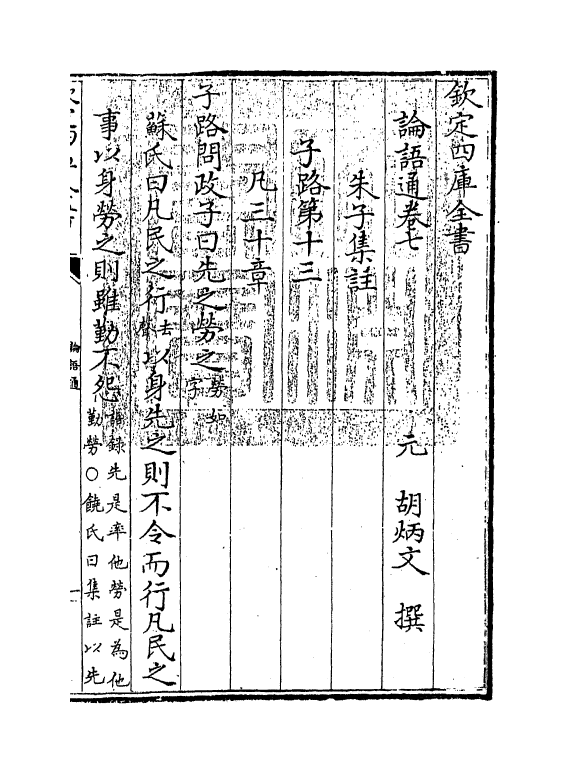 欽定四庫全書
論語通卷七
元 胡炳文 撰
朱子集註
子路第十三
凡三十章
子路問政子曰先之勞之勞如字
蘇氏曰凡民之行去聲以身先之則不令而行凡民之
事以身勞之則雖勤不怨語録先是率他勞是為他
勤勞○饒氏曰集註以先
論語通
一